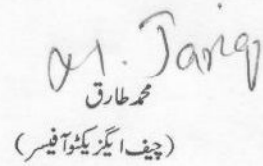 M. Tariq
محمد طارق
(چیف ایگزیکٹو آفیسر)